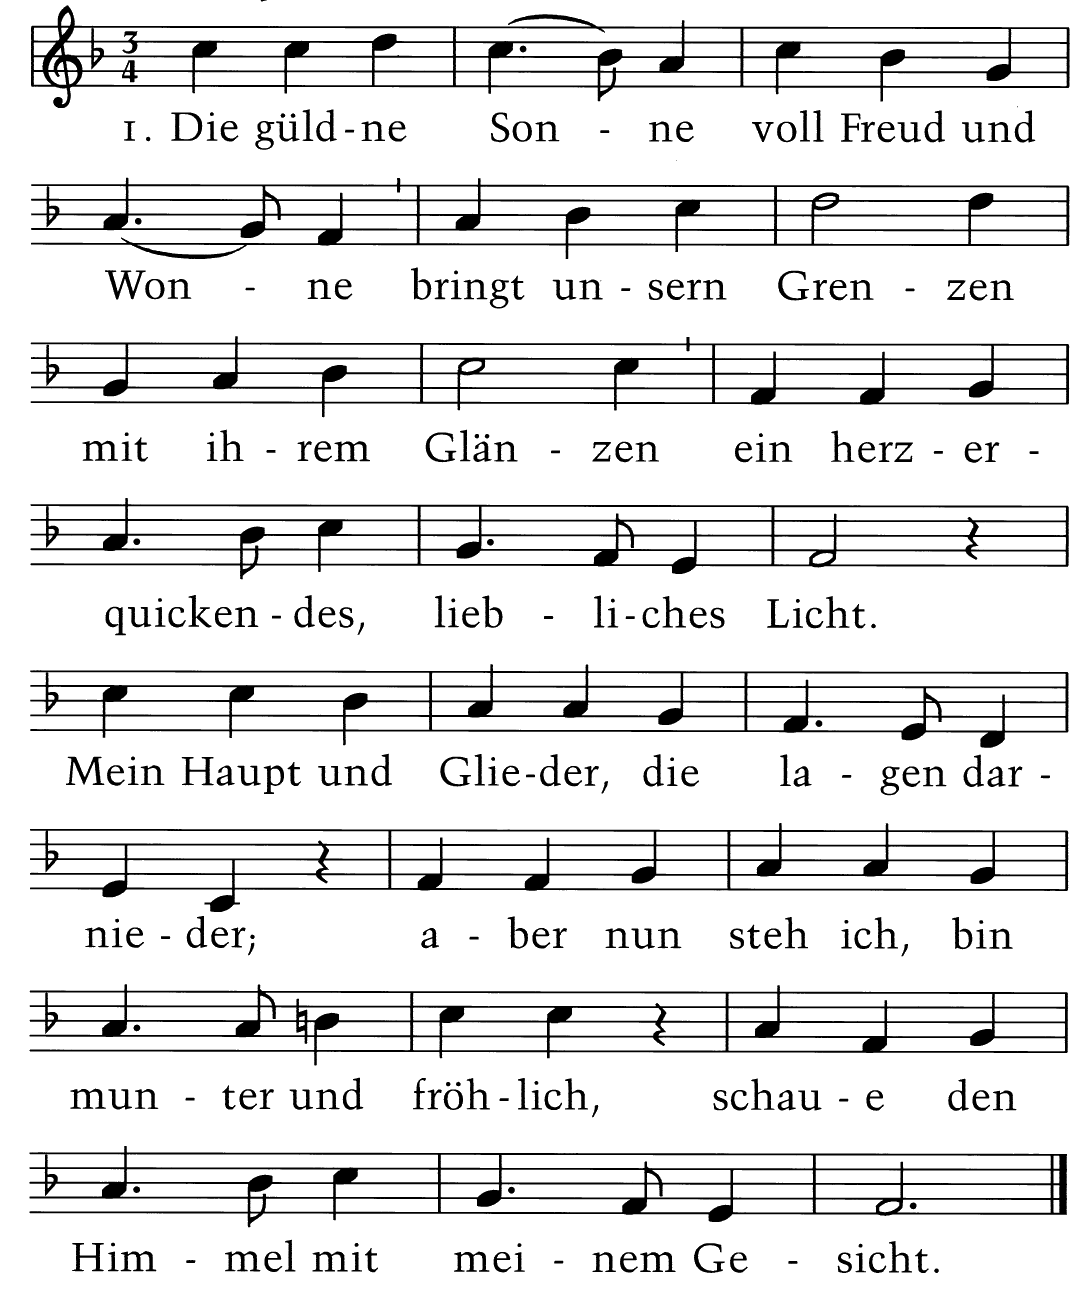 3
4
1. Die güld-ne Son - ne voll Freud und
Won - ne bringt un - sern Gren - zen
mit ih - rem Glän - zen ein herz - er -
quicken - des, lieb - li-ches Licht.
Mein Haupt und Glie-der, die la - gen dar -
nie - der; a - ber nun steh ich, bin
mun - ter und fröh-lich, schau - e den
Him - mel mit mei - nem Ge - sicht.